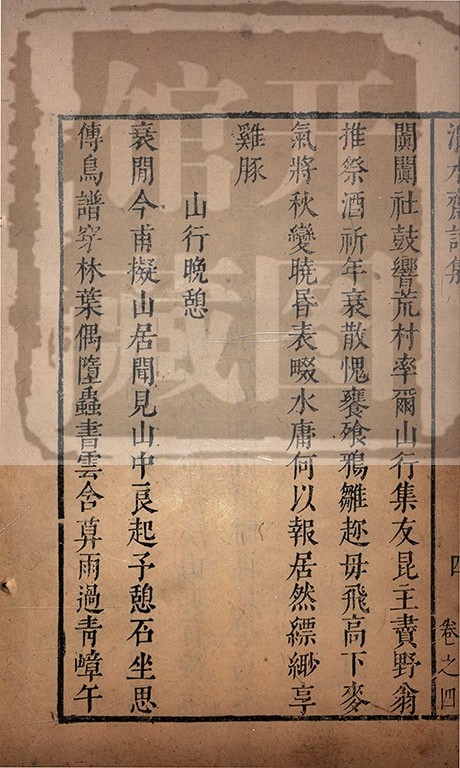 水齋詩集 四 卷之四
闐闐社鼓響荒村率爾山行集友昆主賚野翁
推祭酒祈年衰散愧饔飱鴉雛趂毋飛高下麥
氣將秋變曉昏表畷水庸何以報居然縹緲享
雞豚
山行晚憩
衰閒今甫擬山居聞見山中良起子憩石坐思
傳鳥譜穿林葉偶墮蟲書雲含雨過青嶂午
开图
馆藏